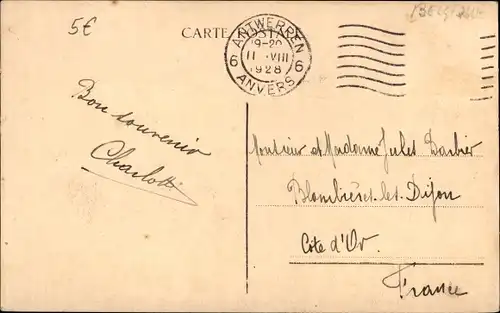 5€
CARTE POSTALE
ANTWERPEN
6 19-20 6
11 VIII
1928
ANVERS
Bon souvenir
Charlott
Monsieur et Madame Jules Barbier
Plombières-les-Dijon
Côte d'Or.
France